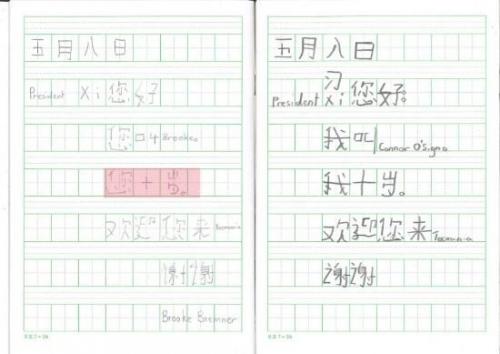 五月八日
President Xi 您好
您叫 Brooke
您十岁。
欢迎您来 Tasmania
谢谢
Brooke Bremner
五月八日
President 习 Xi 您好。
我叫 Connor O'Signo
我十岁。
欢迎您来 Tasmania
谢谢